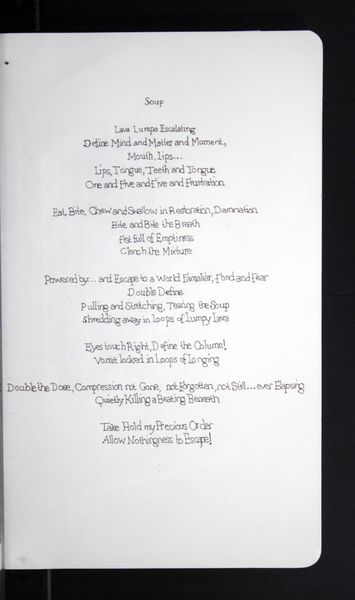 Soup
Lava Lumps Escalating
Define Mind and Matter and Moment,
Mouth, Lips...
Lips, Tongue, Teeth and Tongue
One and Five and Five and Frustration
Eat, Bite, Chew and Swallow in Restoration, Damnation
Bite and Bite the Breath
Fist full of Emptiness
Clench the Mixture
Powered by... and Escape to a World Familiar, Fond and Fear
Double Define
Pulling and Stretching, Tearing the Soup
Shredding away in Loops of Lumpy Lava
Eyes touch Right, Define the Column!
Vomit locked in Loops of Longing
Double the Dose, Compression not Gone, not Forgotten, not Still... ever Elapsing
Quietly Killing a Beating Beneath
Take Hold my Precious Order
Allow Nothingness to Escape!